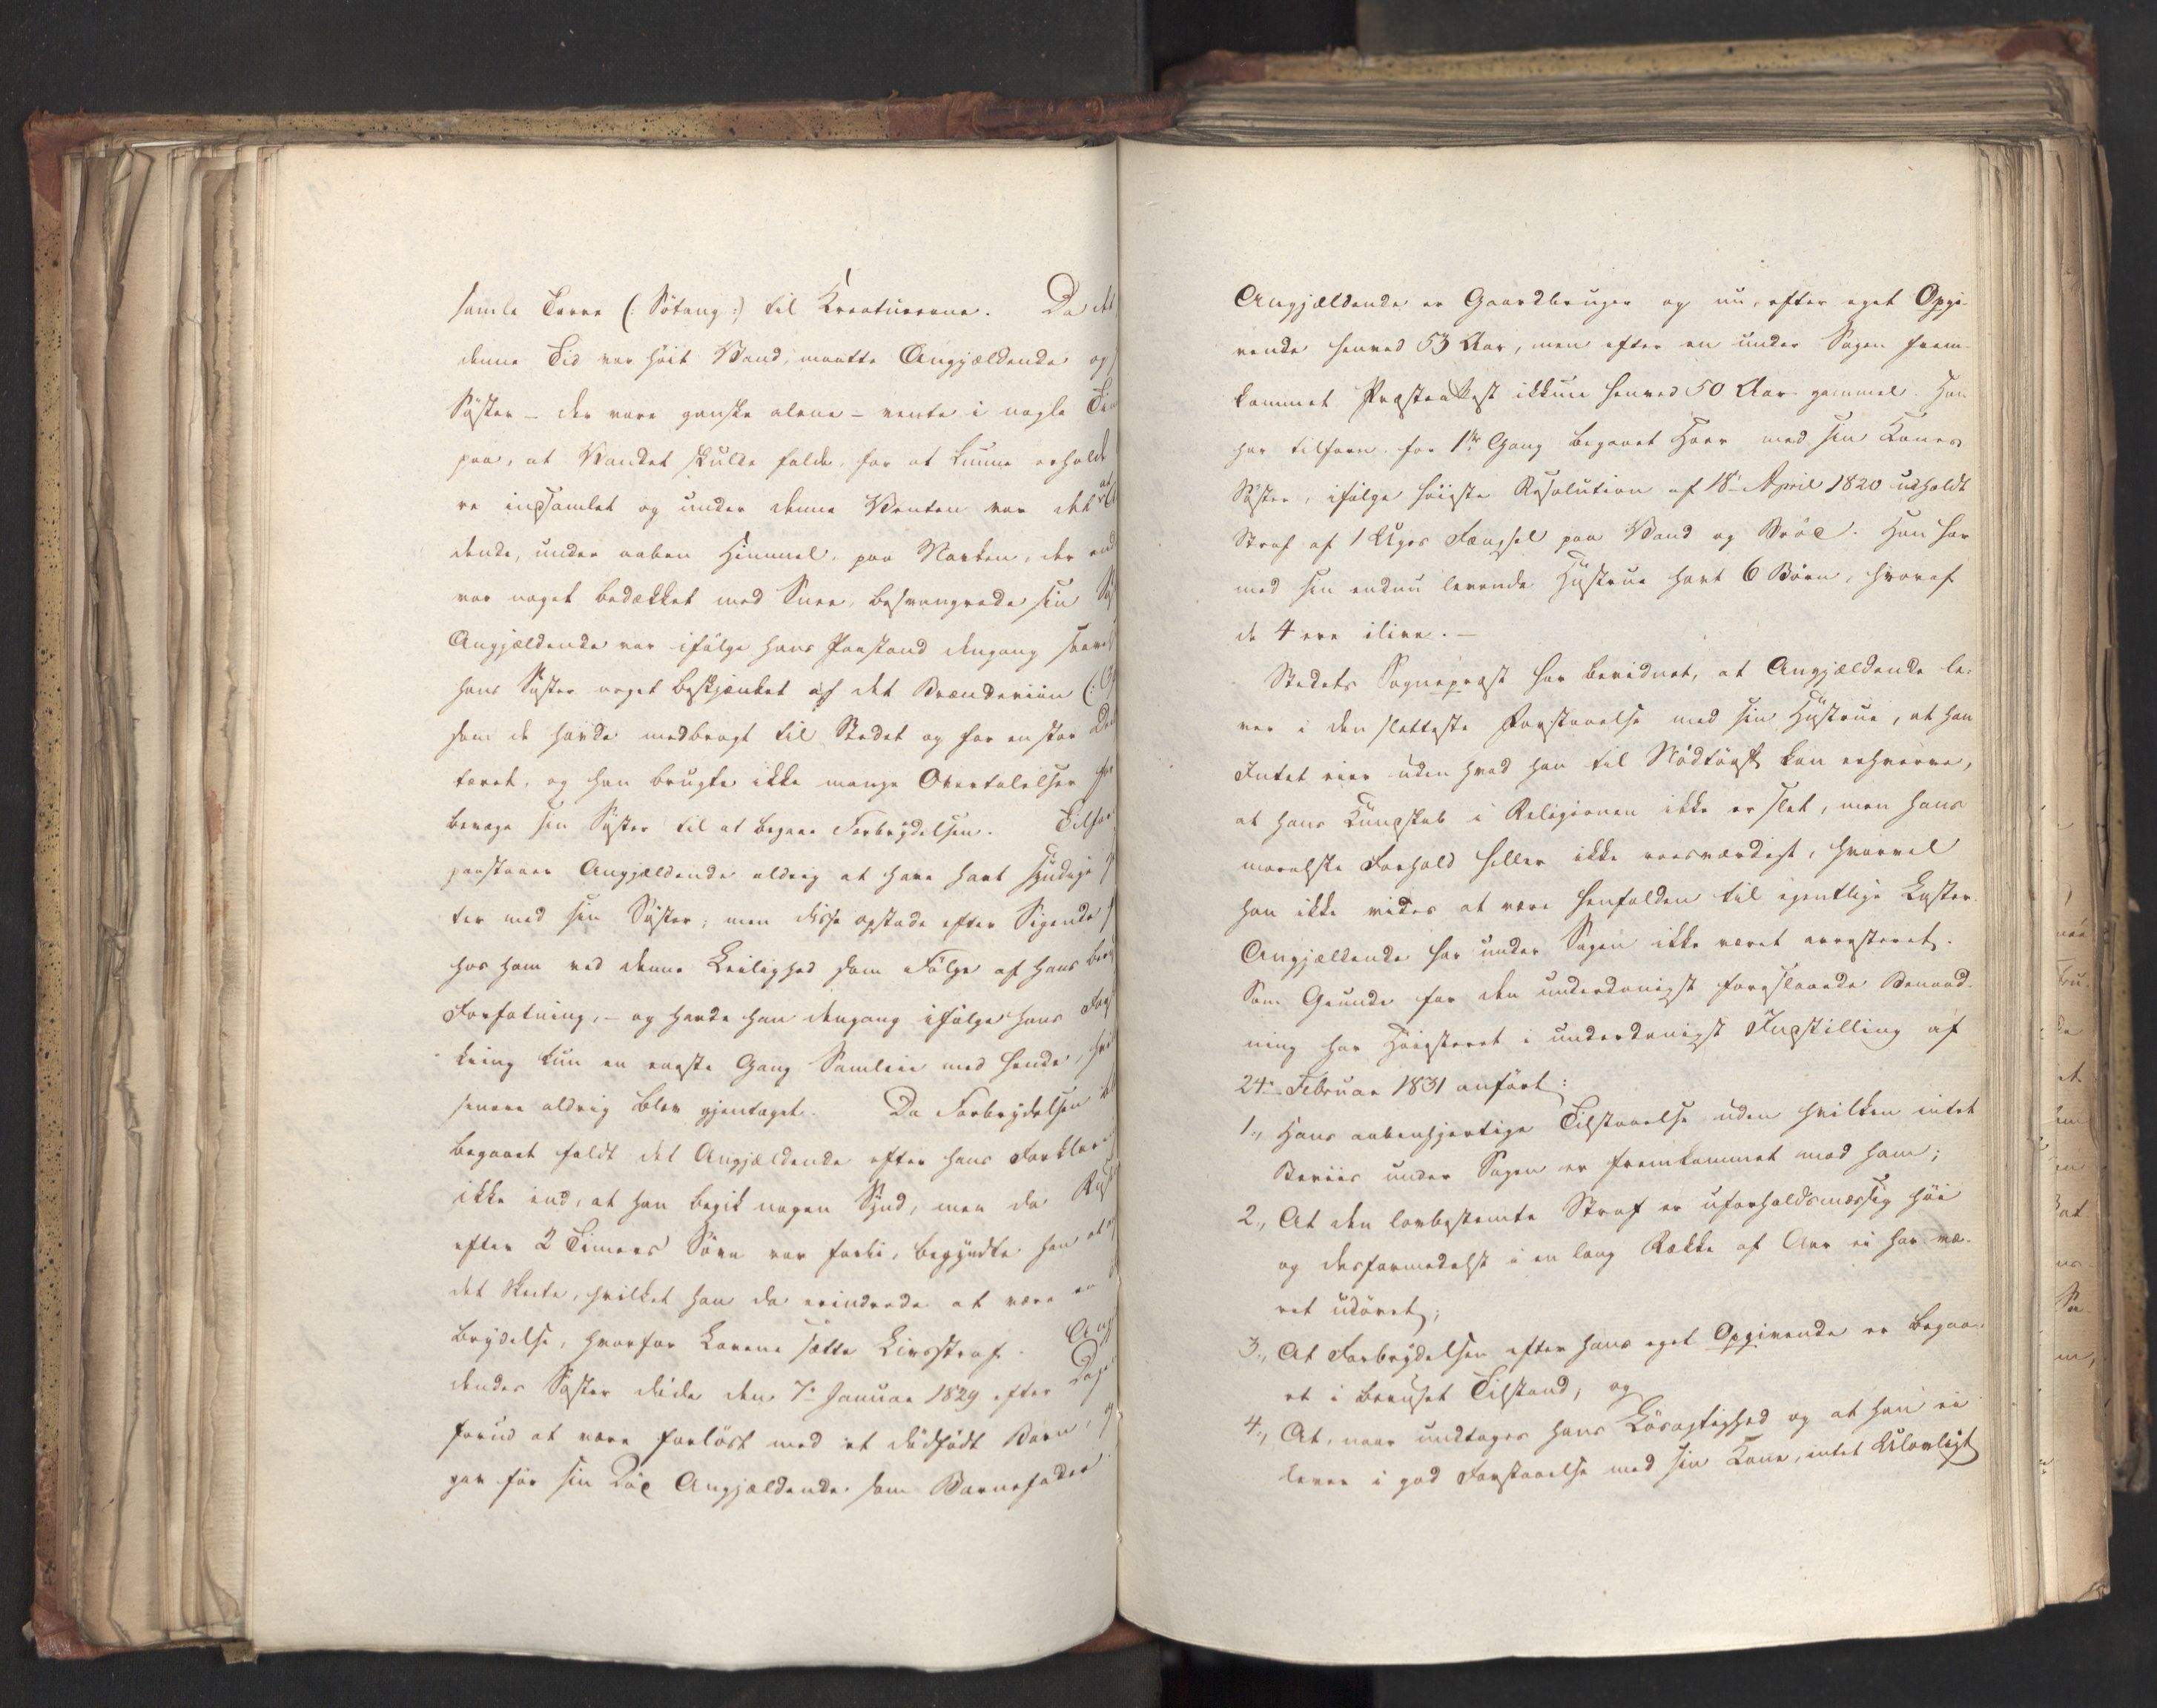 samle Tarre (: Søtang :) til Kreaturerne. Da det
denne Tid var höit Vand, maatte Angjældende og
Syster – der vare ganske alene – vente i nogle
paa, at Vandet skulde falde, for at kunne erholde
re indsamlet og under denne Venten var det at
dende, under aaben Himmel, paa Marken, der
var noget bedækket med Snee, besvangrede sin
Angjældende var ifölge hans Paastand dengang saavel
hans Syster noget beskjænket af det Brændeviin (:
som de havde medbragt til Stedet og for en stor
tæret, og han brugte ikke mange Overtalelser for
bevæge sin Syster til at begaae Forbrydelsen. Tilfor
paastaaer Angjældende aldrig at have havt syndige
ter med sin Syster, men disse opstode efter Sigende
hos ham ved denne Leilighed som Fölge af hans
Forfatning, – og havde han dengang ifölge hans
kring kun en eneste Gang Samleie med hende,
senere aldrig blev gjentaget. Da Forbrydelsen
begaaet faldt det Angjældende efter hans Forklar
ikke ind, at han begik nogen Synd, men da
efter 2 Timers Sövn var forbi, begyndte han at
det Skete, hvilket han da erindrede at være en
brydelse, hvorfor Lovene satte Livsstraf.
dendes Syster döde den 7de Januar 1829 efter Dage
forud at være forlöst med et dödfödt Barn,
gav för sin Död Angjældende som Barnefader.
Angjældende er Gaardbruger og nu, efter eget Opgi-
vende henved 53 Aar, men efter en under Sagen frem-
kommet Præsteattest ikkun henved 50 Aar gammel. Han
har tilforn for 1ste Gang begaaet Hoer med sin Kones
Syster, ifölge höieste Resolution af 18de April 1820 udholdt
Straf af 1 Uges Fængsel paa Vand og Bröd. Han har
med sin endnu levende Hustrue havt 6 Börn, hvoraf
de 4 ere ilive. –
Stedets Sognepræst har bevidnet, at Angjældende le-
ver i den sletteste Forstaaelse med sin Hustrue, at han
Intet eier uden hvad han til Nödtörft kan erhverve,
at hans Kundskab i Religionen ikke er slet, men hans
moralske Forhold heller ikke roesværdigt, hvorvel
han ikke vides at være henfalden til egentlige Laster.
Angjældende har under Sagen ikke været arresteret.
Som Grunde for den underdanigst foreslaaede Benaad-
ning har Höiesteret i underdanigst Indstilling af
24de Februar 1831 anfört:
1., Hans aabenhjertige Tilstaaelse uden hvilken intet
Beviis under Sagen er fremkommet mod ham;
2., At den lovbestemte Straf er uforholdsmæssig höi
og desformedelst i en lang Række af Aar ei har væ-
ret udövet;
3., At Forbrydelsen efter hans eget Opgivende er begaa-
et i beruset Tilstand, og
4., At, naar undtages hans Lösagtighed og at han ei
lever i god Forstaaelse med sin Kone, intet Ulovligt